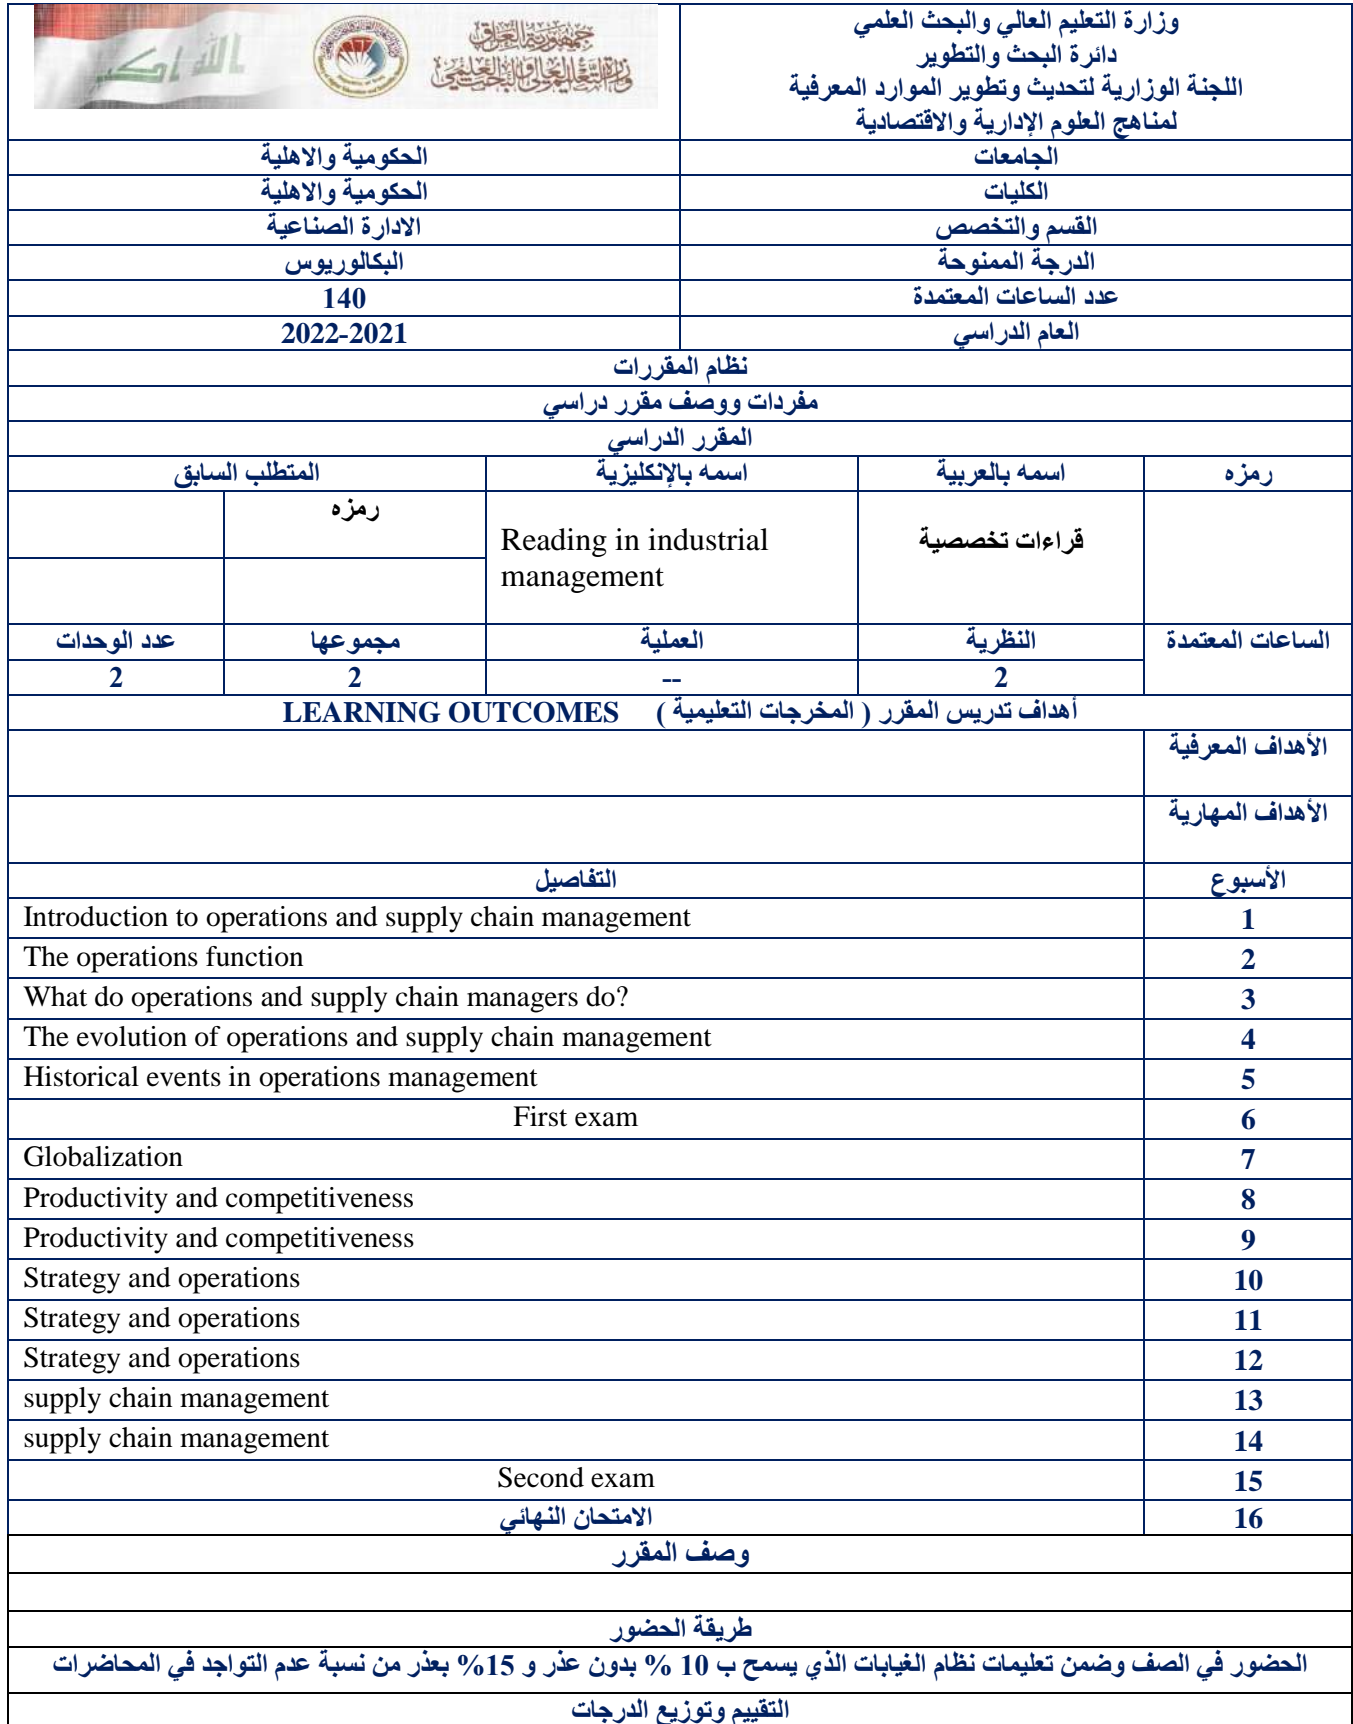 وزارة التعليم العالي والبحث العلمي
دائرة البحث والتطوير
اللجنة الوزارية لتحديث وتطوير الموارد المعرفية
لمناهج العلوم الإدارية والاقتصادية
جمهورية العراق
وزارة التعليم العالي والبحث العلمي
الله اكبر
الجامعات الحكومية والاهلية
الكليات الحكومية والاهلية
القسم والتخصص الادارة الصناعية
الدرجة الممنوحة البكالوريوس
عدد الساعات المعتمدة 140
العام الدراسي 2021-2022
نظام المقررات
مفردات ووصف مقرر دراسي
المقرر الدراسي
رمزه اسمه بالعربية اسمه بالإنكليزية المتطلب السابق
رمزه
قراءات تخصصية
Reading in industrial
management
الساعات المعتمدة النظرية العملية مجموعها عدد الوحدات
2 -- 2 2
أهداف تدريس المقرر ( المخرجات التعليمية ) LEARNING OUTCOMES
الأهداف المعرفية
الأهداف المهارية
الأسبوع التفاصيل
1 Introduction to operations and supply chain management
2 The operations function
3 What do operations and supply chain managers do?
4 The evolution of operations and supply chain management
5 Historical events in operations management
6 First exam
7 Globalization
8 Productivity and competitiveness
9 Productivity and competitiveness
10 Strategy and operations
11 Strategy and operations
12 Strategy and operations
13 supply chain management
14 supply chain management
15 Second exam
16 الامتحان النهائي
وصف المقرر
طريقة الحضور
الحضور في الصف وضمن تعليمات نظام الغيابات الذي يسمح ب 10 % بدون عذر و 15% بعذر من نسبة عدم التواجد في المحاضرات
التقييم وتوزيع الدرجات